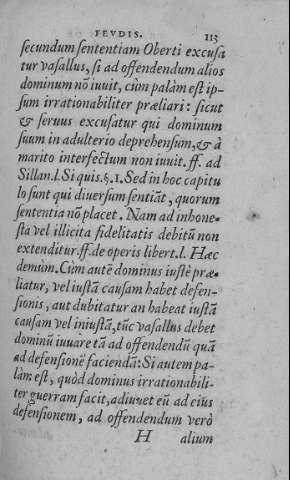 FEVDIS. 113
secundum sententiam Oberti excusa
tur vasallus, si ad offendendum alios
dominum nõ iuuit, cùm palàm est ip-
sum irrationabiliter præliari: sicut
& seruus excusatur qui dominum
suum in adulterio deprehensum, & à
marito interfectum non iuuit. ff. ad
Sillan.l. Si quis.§.1. Sed in hoc capitu
lo sunt qui diuersum sentiãt, quorum
sententia nõ placet. Nam ad inhone-
sta vel illicita fidelitatis debitũ non
extenditur. ff. de operis libert. l. Hæc
demùm. Cùm autẽ dominus iustè præ-
liatur, vel iustã causam habet defen-
sionis, aut dubitatur an habeat iustã
causam vel iniustã, tũc vasallus debet
dominũ iuuare tã ad offendendũ quã
ad defensionẽ faciendã: Si autem pa-
làm est, quòd dominus irrationabili-
ter guerram facit, adiuuet eũ ad eius
defensionem, ad offendendum verò
H alium